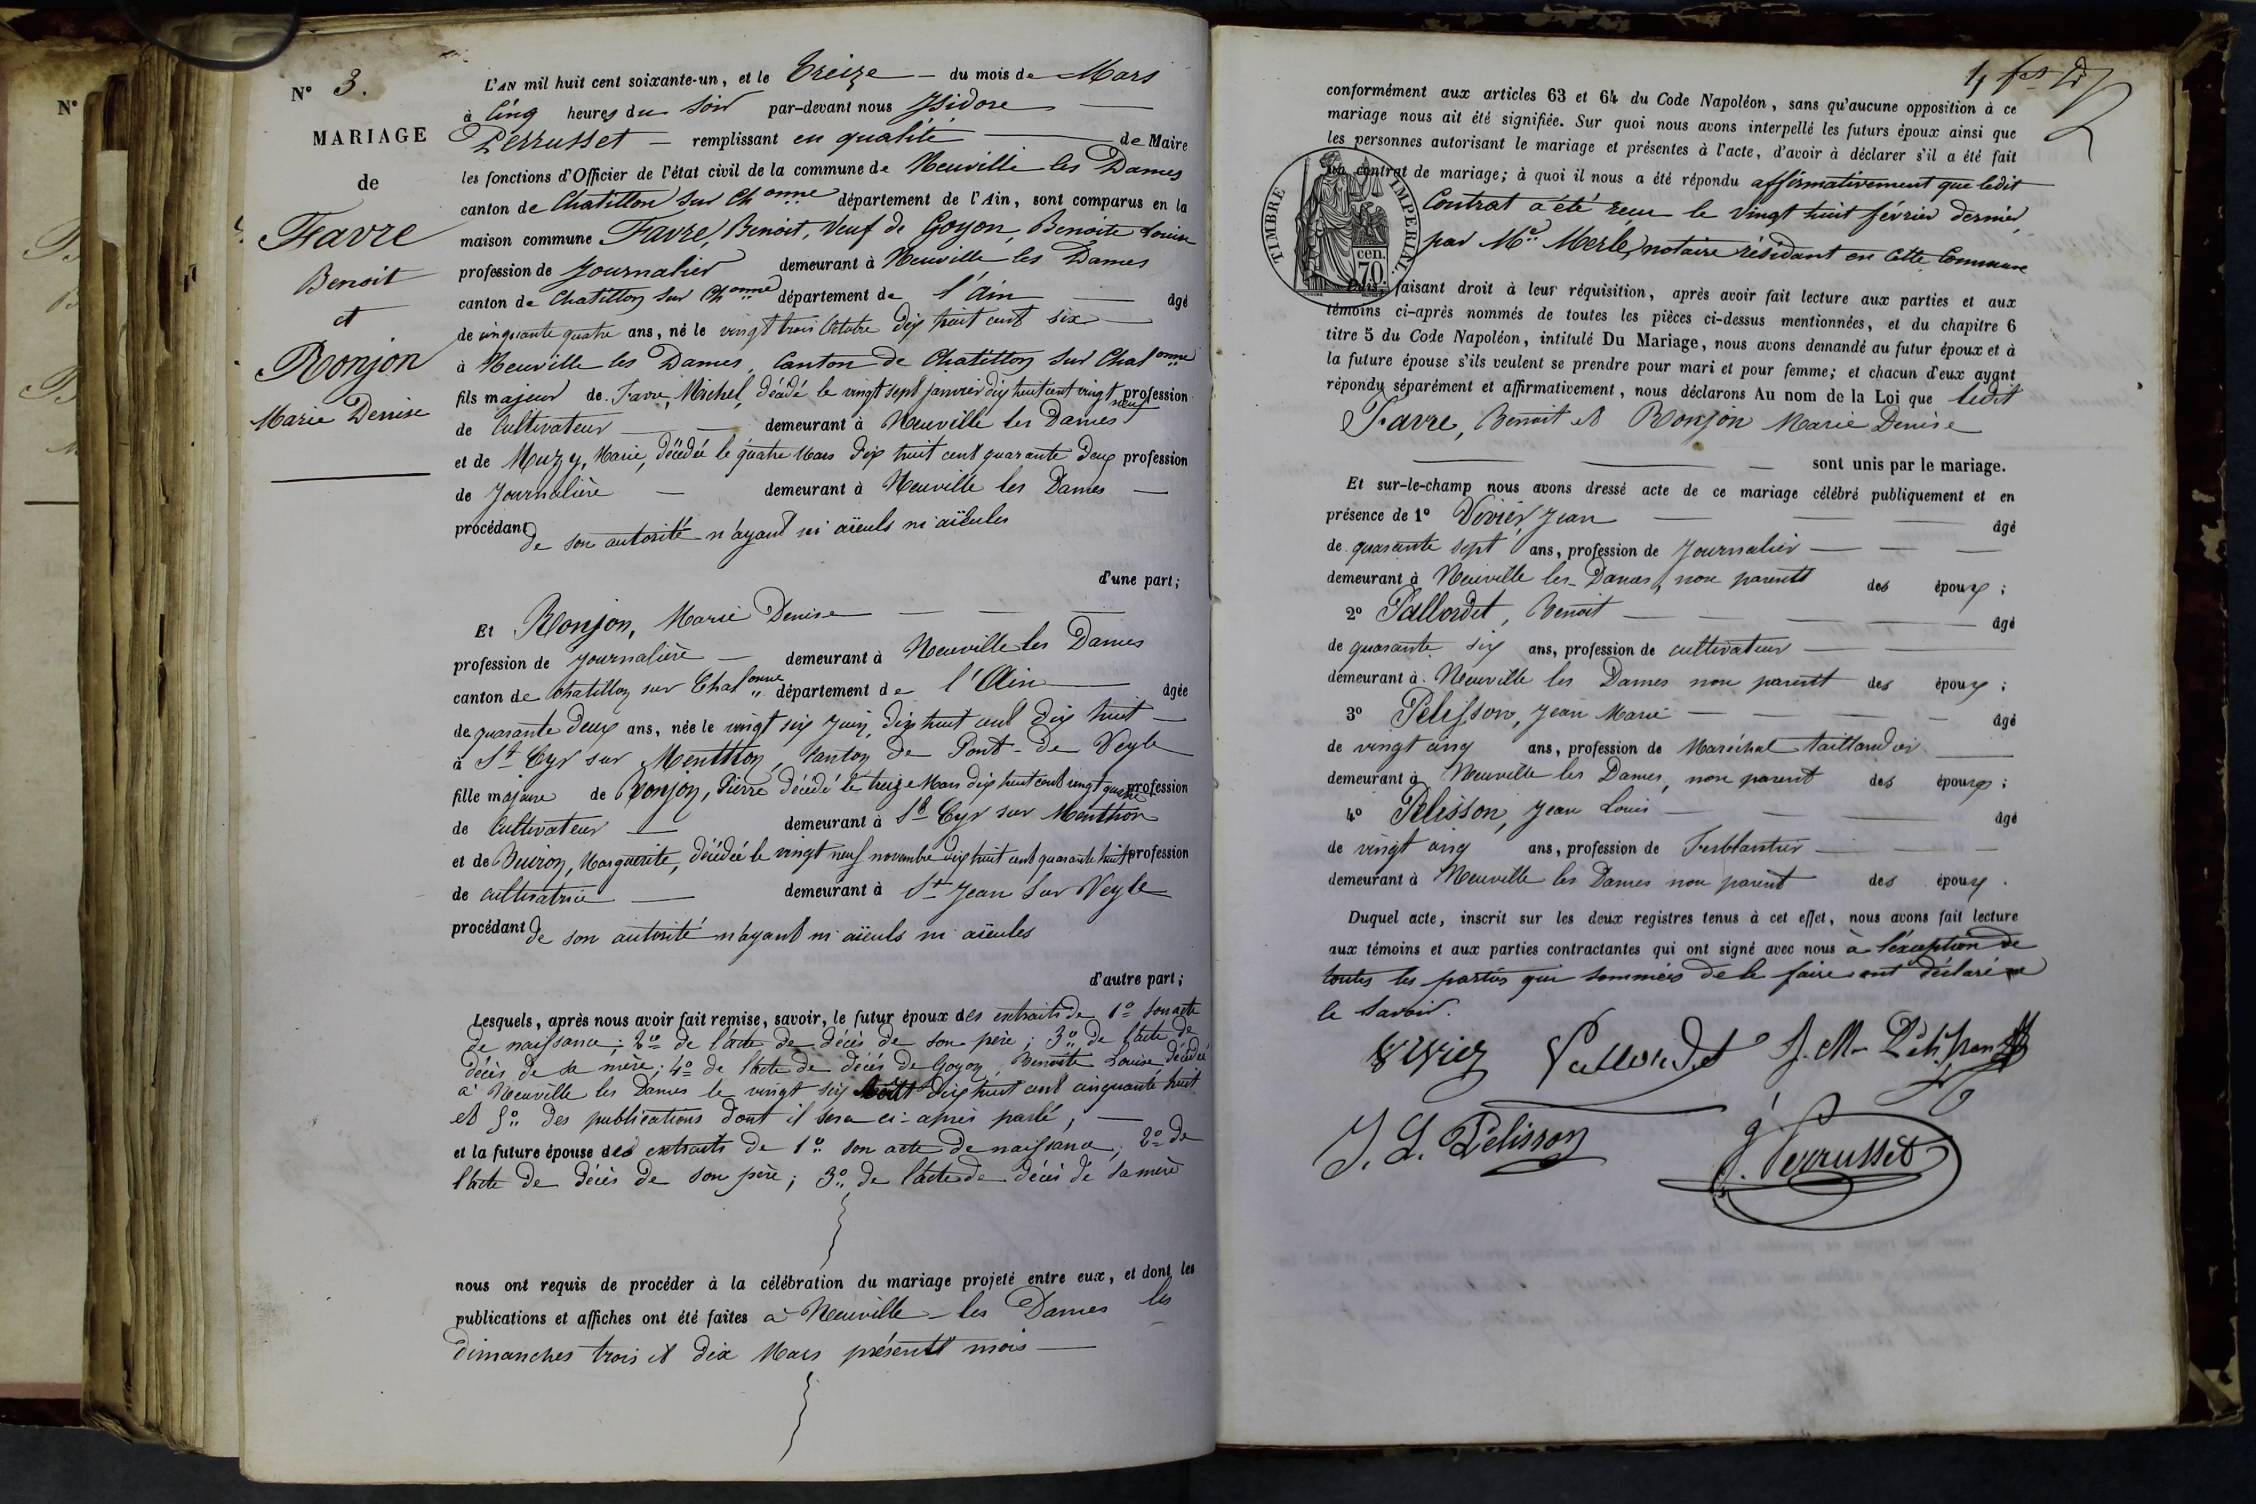 N°
N° 3.
MARIAGE
de
Favre
Benoit
et
Ronjon
Marie Denise
L'AN mil huit cent soixante-un, et le Treize du mois de Mars
à Cinq heures du Soir par-devant nous Isidore
Perrusset remplissant en qualité de Maire
les fonctions d'Officier de l'état civil de la commune de Neuville les Dames
canton de Chatillon sur Chonne département de l'Ain, sont comparus en la
maison commune Favre, Benoit, Veuf de Goyon, Benoite Louise
profession de Journalier demeurant à Neuville les Dames
canton de Chatillon sur Chonne département de l'Ain âgé
de cinquante quatre ans, né le vingt trois Octobre dix huit cent six
à Neuville les Dames, Canton de Chatillon sur Chalonne
fils majeur de Favre, Michel, décédé le vingt sept Janvier dix huit cent vingt neuf profession
de Cultivateur demeurant à Neuville les Dames
et de Muzy, Marie, décédée le quatre Mars dix huit cent quarante deux profession
de Journalière demeurant à Neuville les Dames
procédant de son autorité n'ayant ni aïeuls ni aïeules
d'une part;
Et Ronjon, Marie Denise
profession de Journalière demeurant à Neuville les Dames
canton de Chatillon sur Chalonne département de l'Ain âgée
de quarante deux ans, née le vingt six Juin dix huit cent dix huit
à St Cyr sur Menthon, Canton de Pont-de-Veyle
fille majeure de Ronjon, Pierre décédé le treize Mars dix huit cent vingt quatre profession
de Cultivateur demeurant à St Cyr sur Menthon
et de Buiron, Marguerite, décédée le vingt neuf novembre dix huit cent quarante huit profession
de cultivatrice demeurant à St Jean sur Veyle
procédant de son autorité n'ayant ni aïeuls ni aïeules
d'autre part;
Lesquels, après nous avoir fait remise, savoir, le futur époux des extraits de 1° son acte
de naissance; 2° de l'acte de décès de son père; 3° de l'acte de
décès de sa mère; 4° de l'acte de décès de Goyon, Benoite Louise décédée
à Neuville les Dames le vingt six Août dix huit cent cinquante huit
et 5° des publications dont il sera ci-après parlé,
et la future épouse des extraits de 1° son acte de naissance; 2° de
l'acte de décès de son père; 3° de l'acte de décès de sa mère
nous ont requis de procéder à la célébration du mariage projeté entre eux, et dont les
publications et affiches ont été faites à Neuville-les Dames les
dimanches trois et dix Mars présent mois
conformément aux articles 63 et 64 du Code Napoléon, sans qu'aucune opposition à ce
mariage nous ait été signifiée. Sur quoi nous avons interpellé les futurs époux ainsi que
les personnes autorisant le mariage et présentes à l'acte, d'avoir à déclarer s'il a été fait
un contrat de mariage; à quoi il nous a été répondu affirmativement que ledit
Contrat a été reçu le vingt huit février dernier,
par Me Merle, notaire résidant en cette Commune
TIMBRE IMPERIAL.
70 cen.
Puis, faisant droit à leur réquisition, après avoir fait lecture aux parties et aux
témoins ci-après nommés de toutes les pièces ci-dessus mentionnées, et du chapitre 6
titre 5 du Code Napoléon, intitulé Du Mariage, nous avons demandé au futur époux et à
la future épouse s'ils veulent se prendre pour mari et pour femme; et chacun d'eux ayant
répondu séparément et affirmativement, nous déclarons Au nom de la Loi que ledit
Favre, Benoit et Ronjon Marie Denise
sont unis par le mariage.
Et sur-le-champ nous avons dressé acte de ce mariage célébré publiquement et en
présence de 1° Vivier, Jean âgé
de quarante sept ans, profession de Journalier
demeurant à Neuville les-Dames, non parent des époux;
2° Pallordet, Benoit âgé
de quarante six ans, profession de cultivateur
demeurant à Neuville les Dames non parent des époux;
3° Pelisson, Jean Marie âgé
de vingt cinq ans, profession de Maréchal taillandier
demeurant à Neuville les Dames, non parent des époux;
4° Pelisson, Jean Louis âgé
de vingt cinq ans, profession de Ferblantier
demeurant à Neuville les Dames non parent des époux.
Duquel acte, inscrit sur les deux registres tenus à cet effet, nous avons fait lecture
aux témoins et aux parties contractantes qui ont signé avec nous à l'exception de
toutes les parties qui sommées de le faire ont déclaré ne
le savoir.
Pallordet J. M. Pelisson
J. L. Pelisson
Perrusset